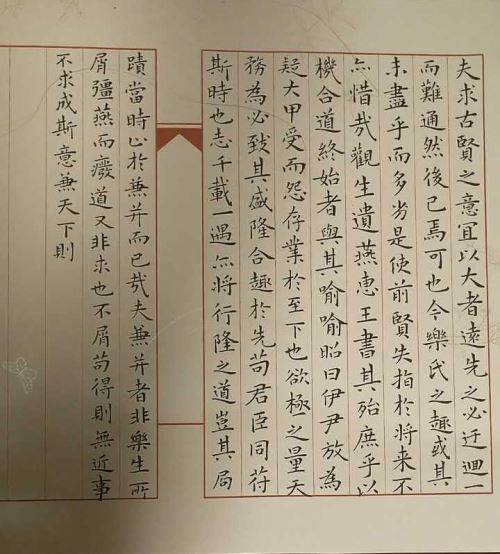 夫求古賢之意宜以大者遠先之必迂迴一
而難通然後已焉可也今樂氏之趣或其
未盡乎而多劣是使前賢失指於將来不
亦惜哉觀生遺燕惠王書其殆庶乎以
機合道終始者與其喻喻昭曰伊尹放為
疑大甲受而怨存業於至下也欲極之量天
務為必致其盛隆合趣於先苟君臣同苻
斯時也志千載一遇亦將行隆之道豈其局
蹟當時止於兼并而已哉夫兼并者非樂生所
屑彊燕而癈道又非求也不屑苟得則無近事
不求成斯意兼天下則